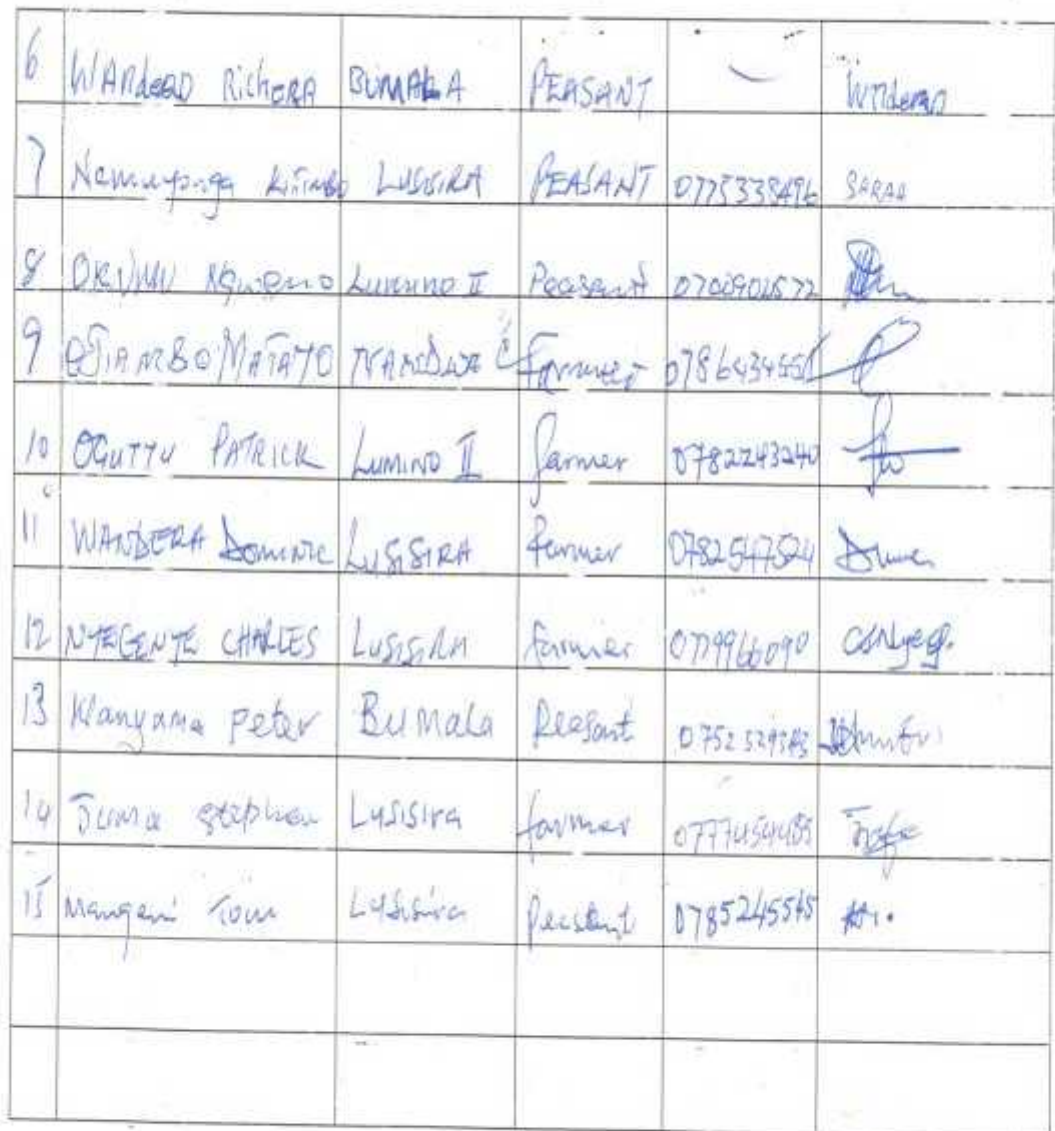 6 WANDERO RICHERA BUMALA PEASANT Wndero
7 Namuyonga Kitimbo LUSISIRA PEASANT 0775335496 SARAA
8 OKUMU Lumino II Peasant 0700901572
9 OJIAMBO MATAYO Farmer
10 OGUTTU PATRICK LUMINO II farmer 0782243240
11 WANDERA DOMINIC LUSISIRA farmer 0782547524
12 NYEGENYE CHARLES LUSISIRA farmer 0779966090
13 Wanyama Peter BUMALA Peasant
14 Juma Stephen Lusisira farmer 0777454485
15 Mangeni Tom Lusisira Peasant 0785245565